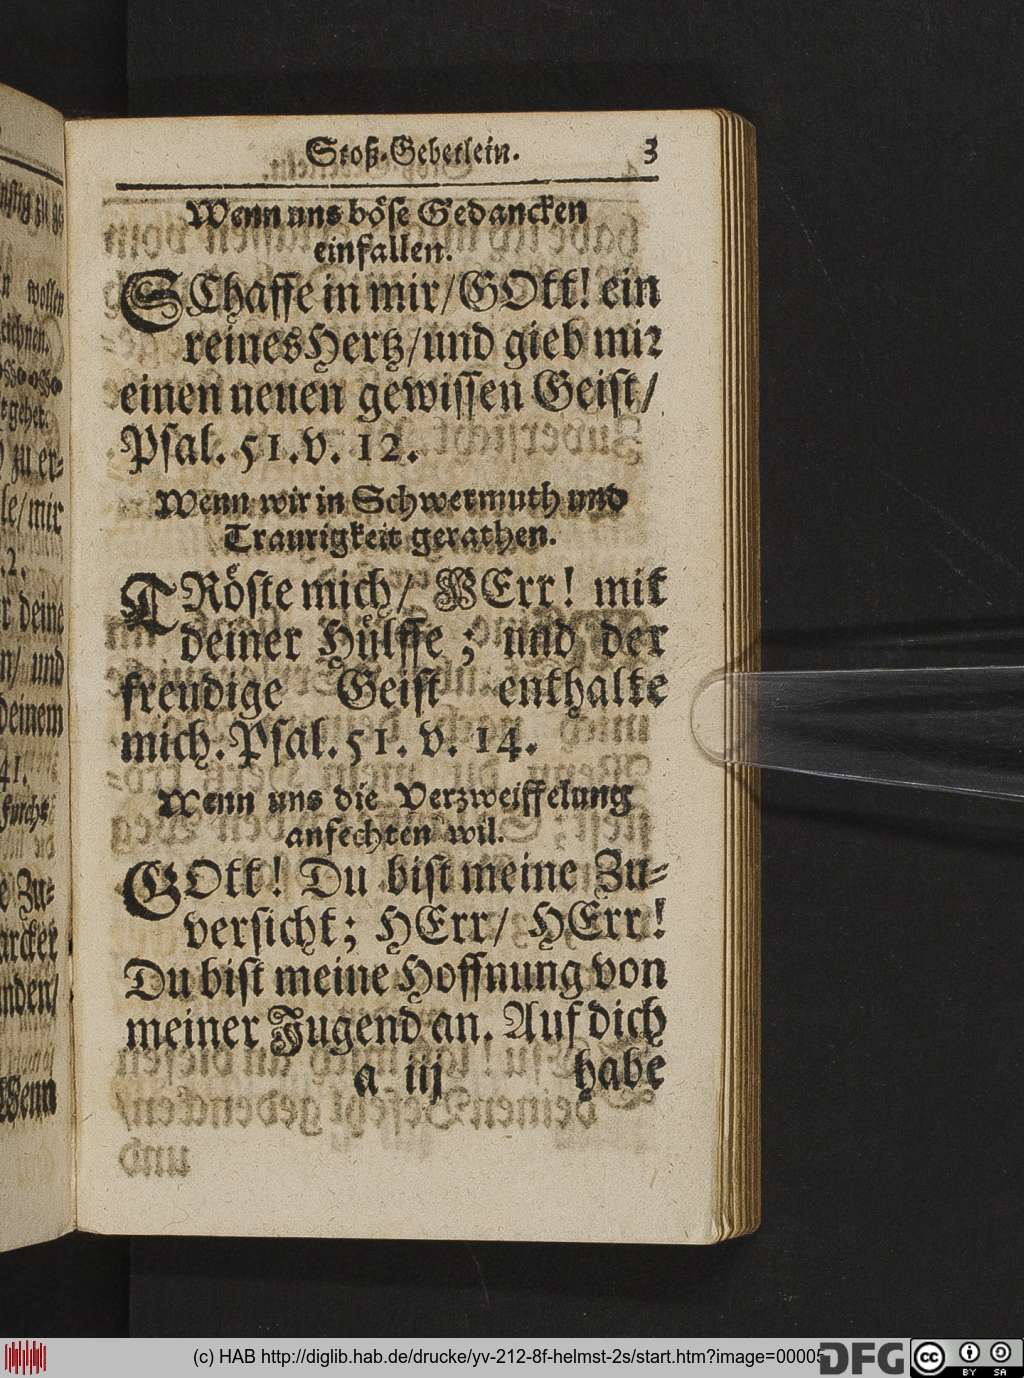 Stoß-Gebetlein. 3
Wenn uns böse Gedancken
einfallen.
SChaffe in mir/ GOtt! ein
reines Hertz/ und gieb mir
einen neuen gewissen Geist/
Psal. 51. v. 12.
Wenn wir in Schwermuth und
Traurigkeit gerathen.
TRöste mich/ HErr! mit
deiner Hülffe; und der
freudige Geist enthalte
mich. Psal. 51. v. 14.
Wenn uns die Verzweiffelung
anfechten wil.
GOtt! Du bist meine Zu-
versicht; HErr/ HErr!
Du bist meine Hoffnung von
meiner Jugend an. Auf dich
a iij habe
(c) HAB http://diglib.hab.de/drucke/yv-212-8f-helmst-2s/start.htm?image=00005
DFG
cc BY SA